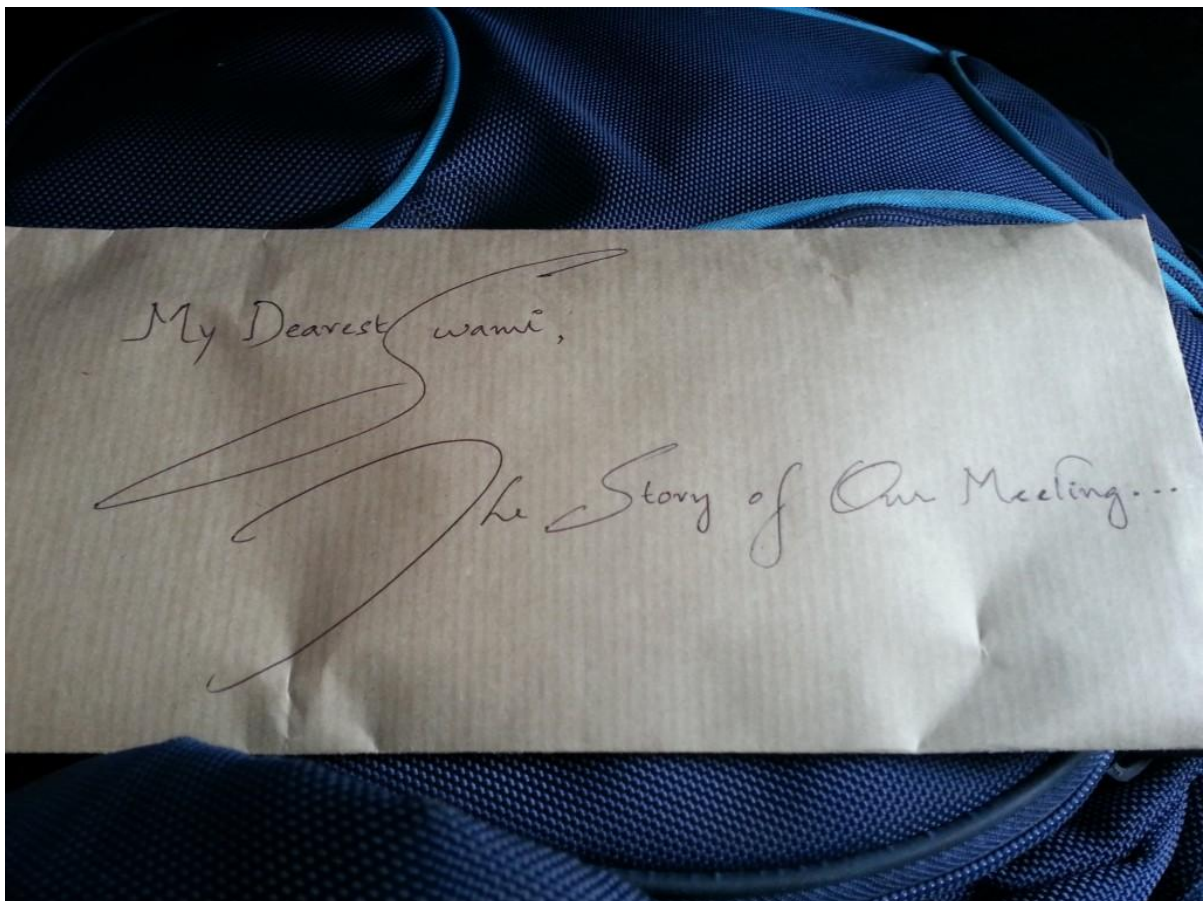 My Dearest Swami,
The Story of Our Meeting...